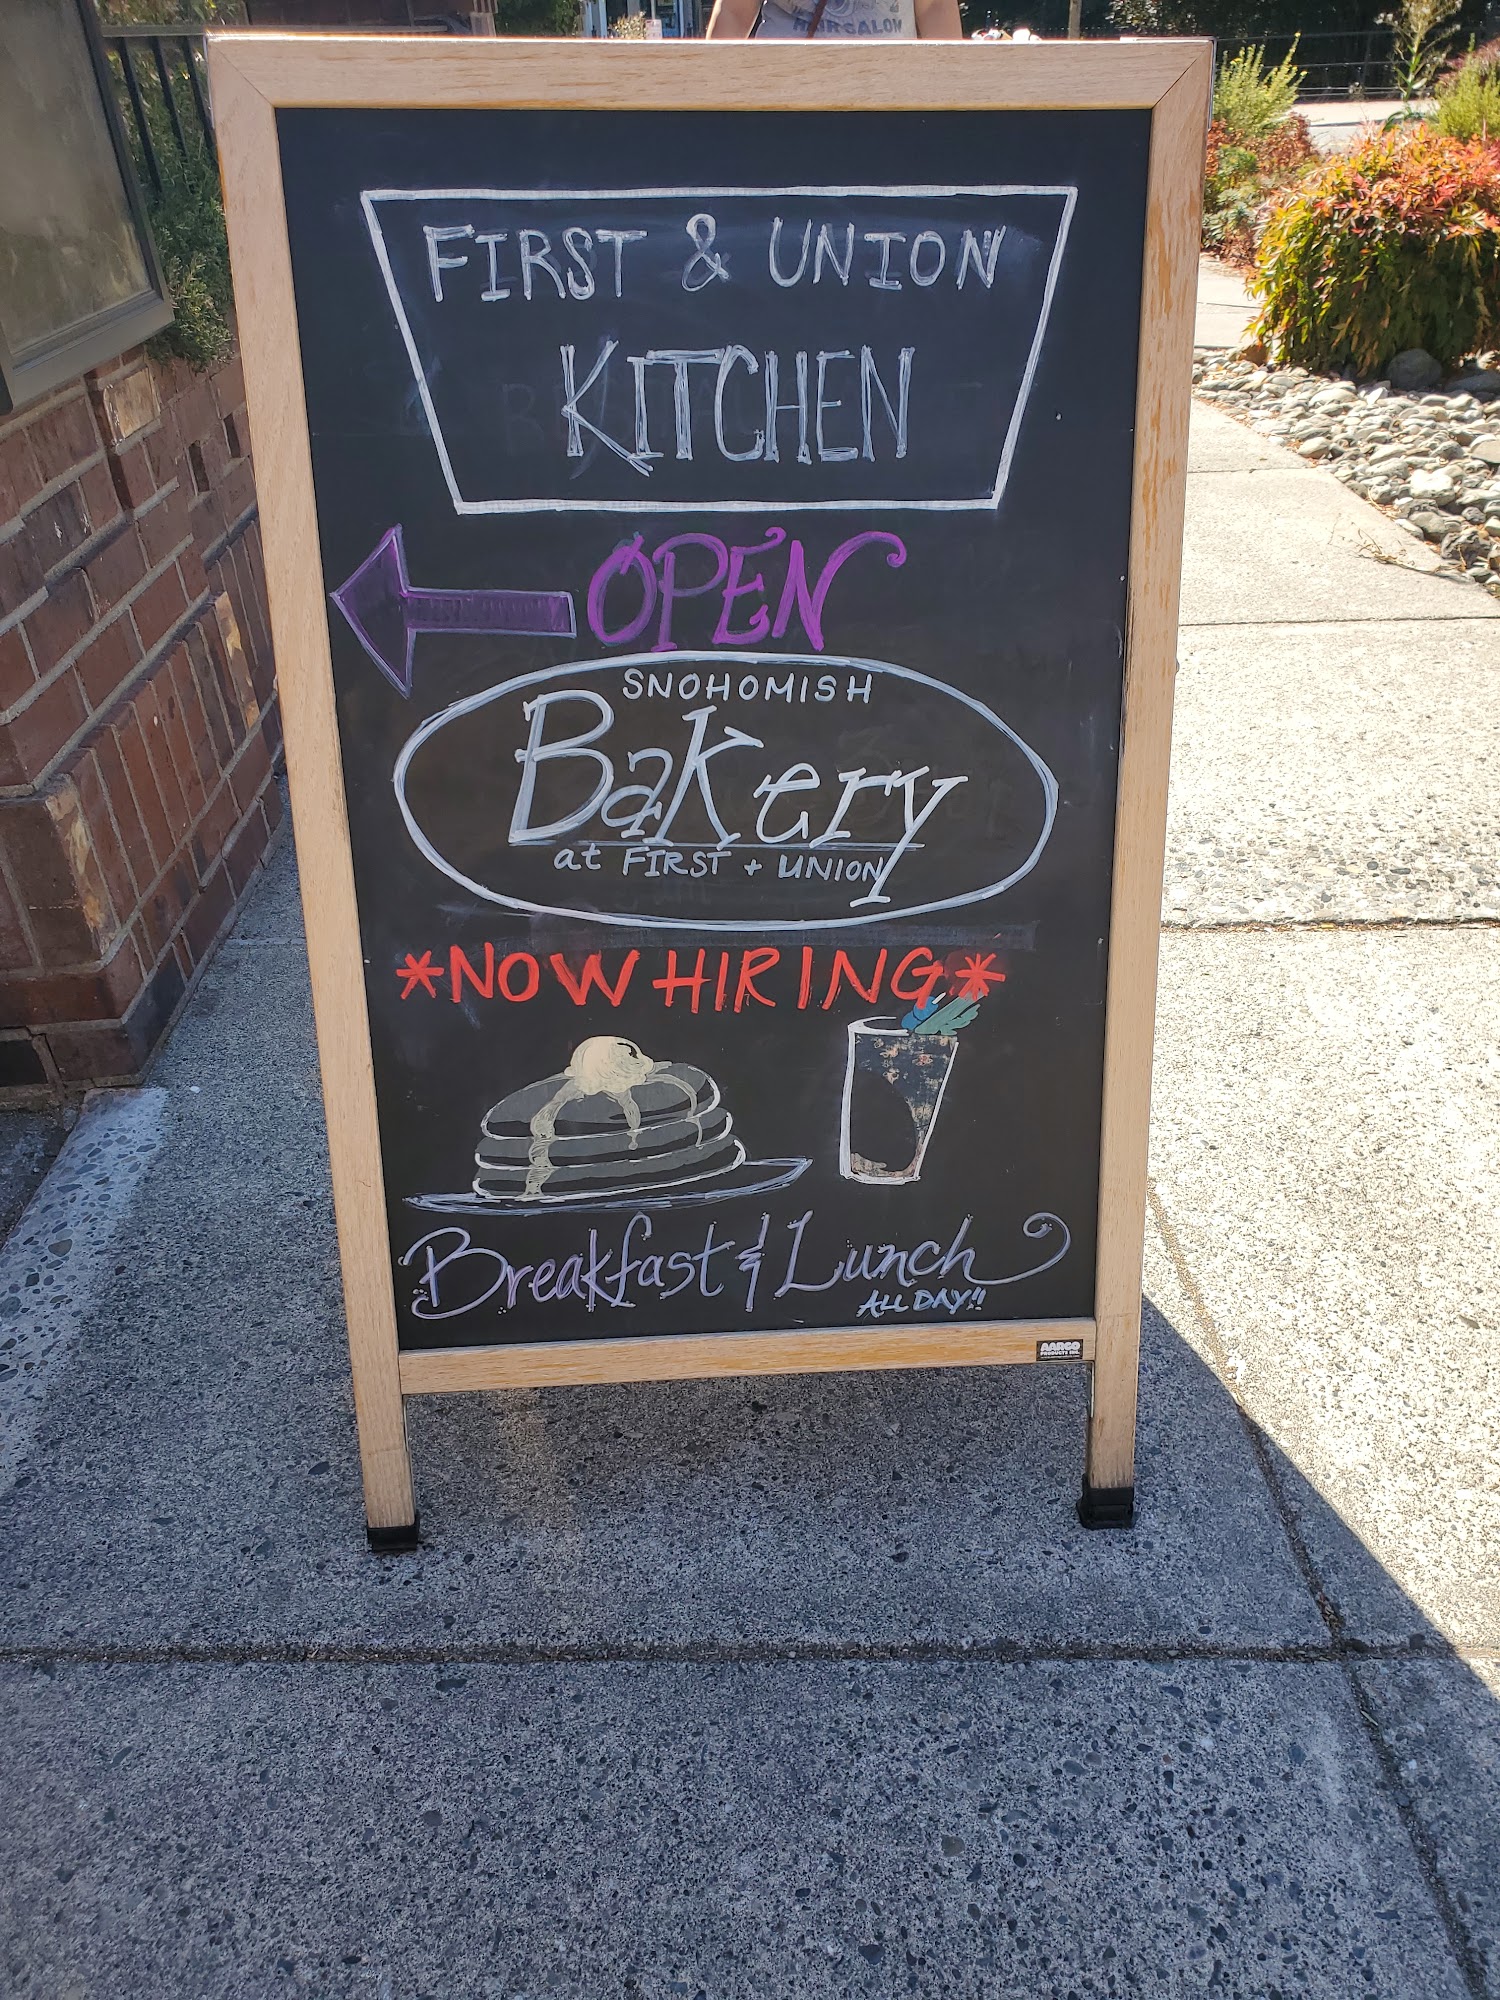 HAIRSALON
FIRST & UNION
KITCHEN
OPEN
SNOHOMISH
BaKery
at FIRST + UNION
*NOW HIRING*
Breakfast & Lunch
ALL DAY!!
AARCO
PRODUCTS INC.